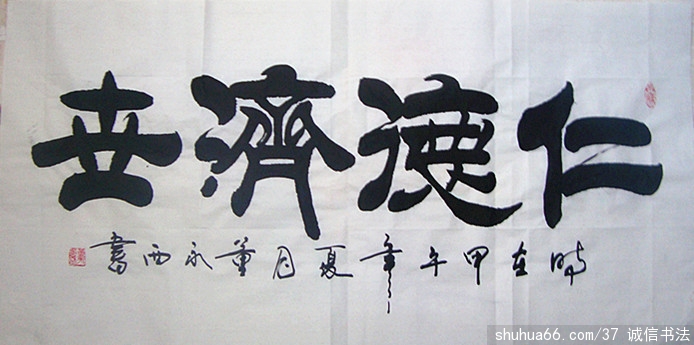 仁德濟世
時在甲午年夏月董永西書
shuhua66.com/37 诚信书法